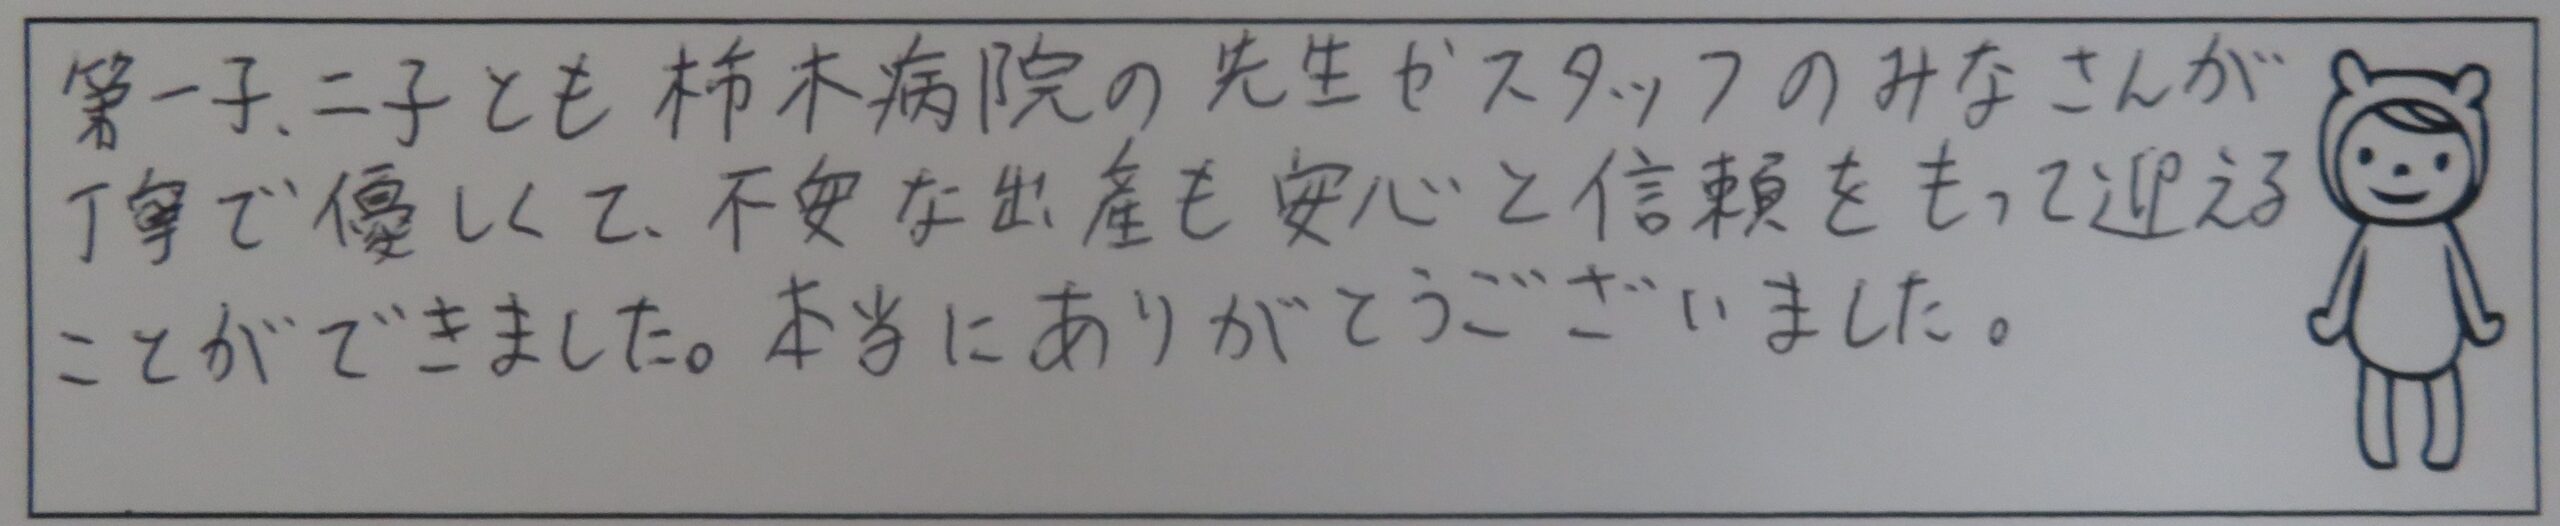 第一子、二子とも柿木病院の先生やスタッフのみなさんが
丁寧で優しくて、不安な出産も安心と信頼をもって迎える
ことができました。本当にありがとうございました。